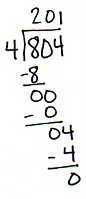 201
4√804
-8
00
- 0
04
- 4
0